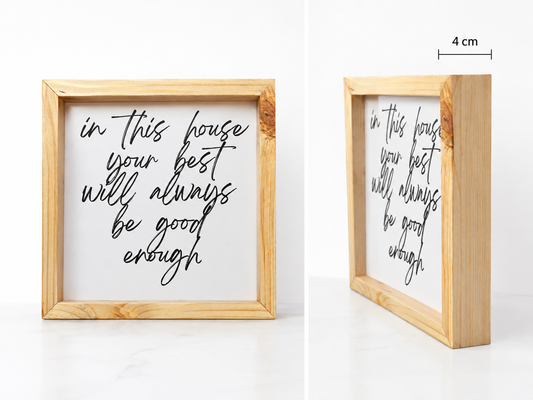 in this house
your best
will always
be good
enough
4 cm
in this house
your best
will always
be good
enough